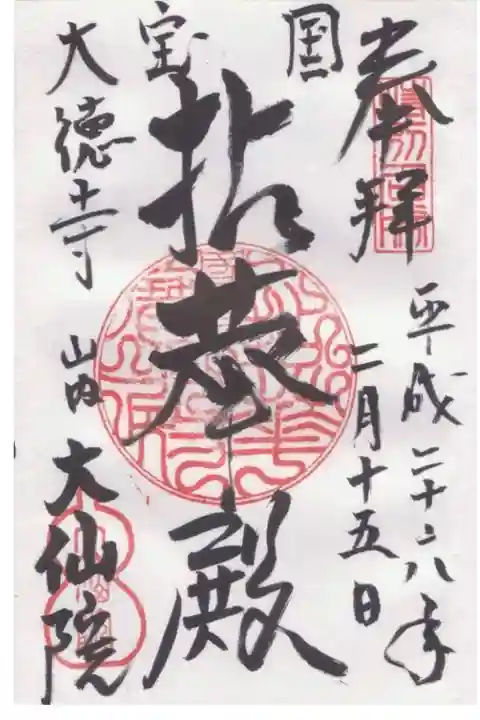 奉拝
平成二十八年
二月十五日
国宝
拈華殿
大徳寺
山内
大仙院